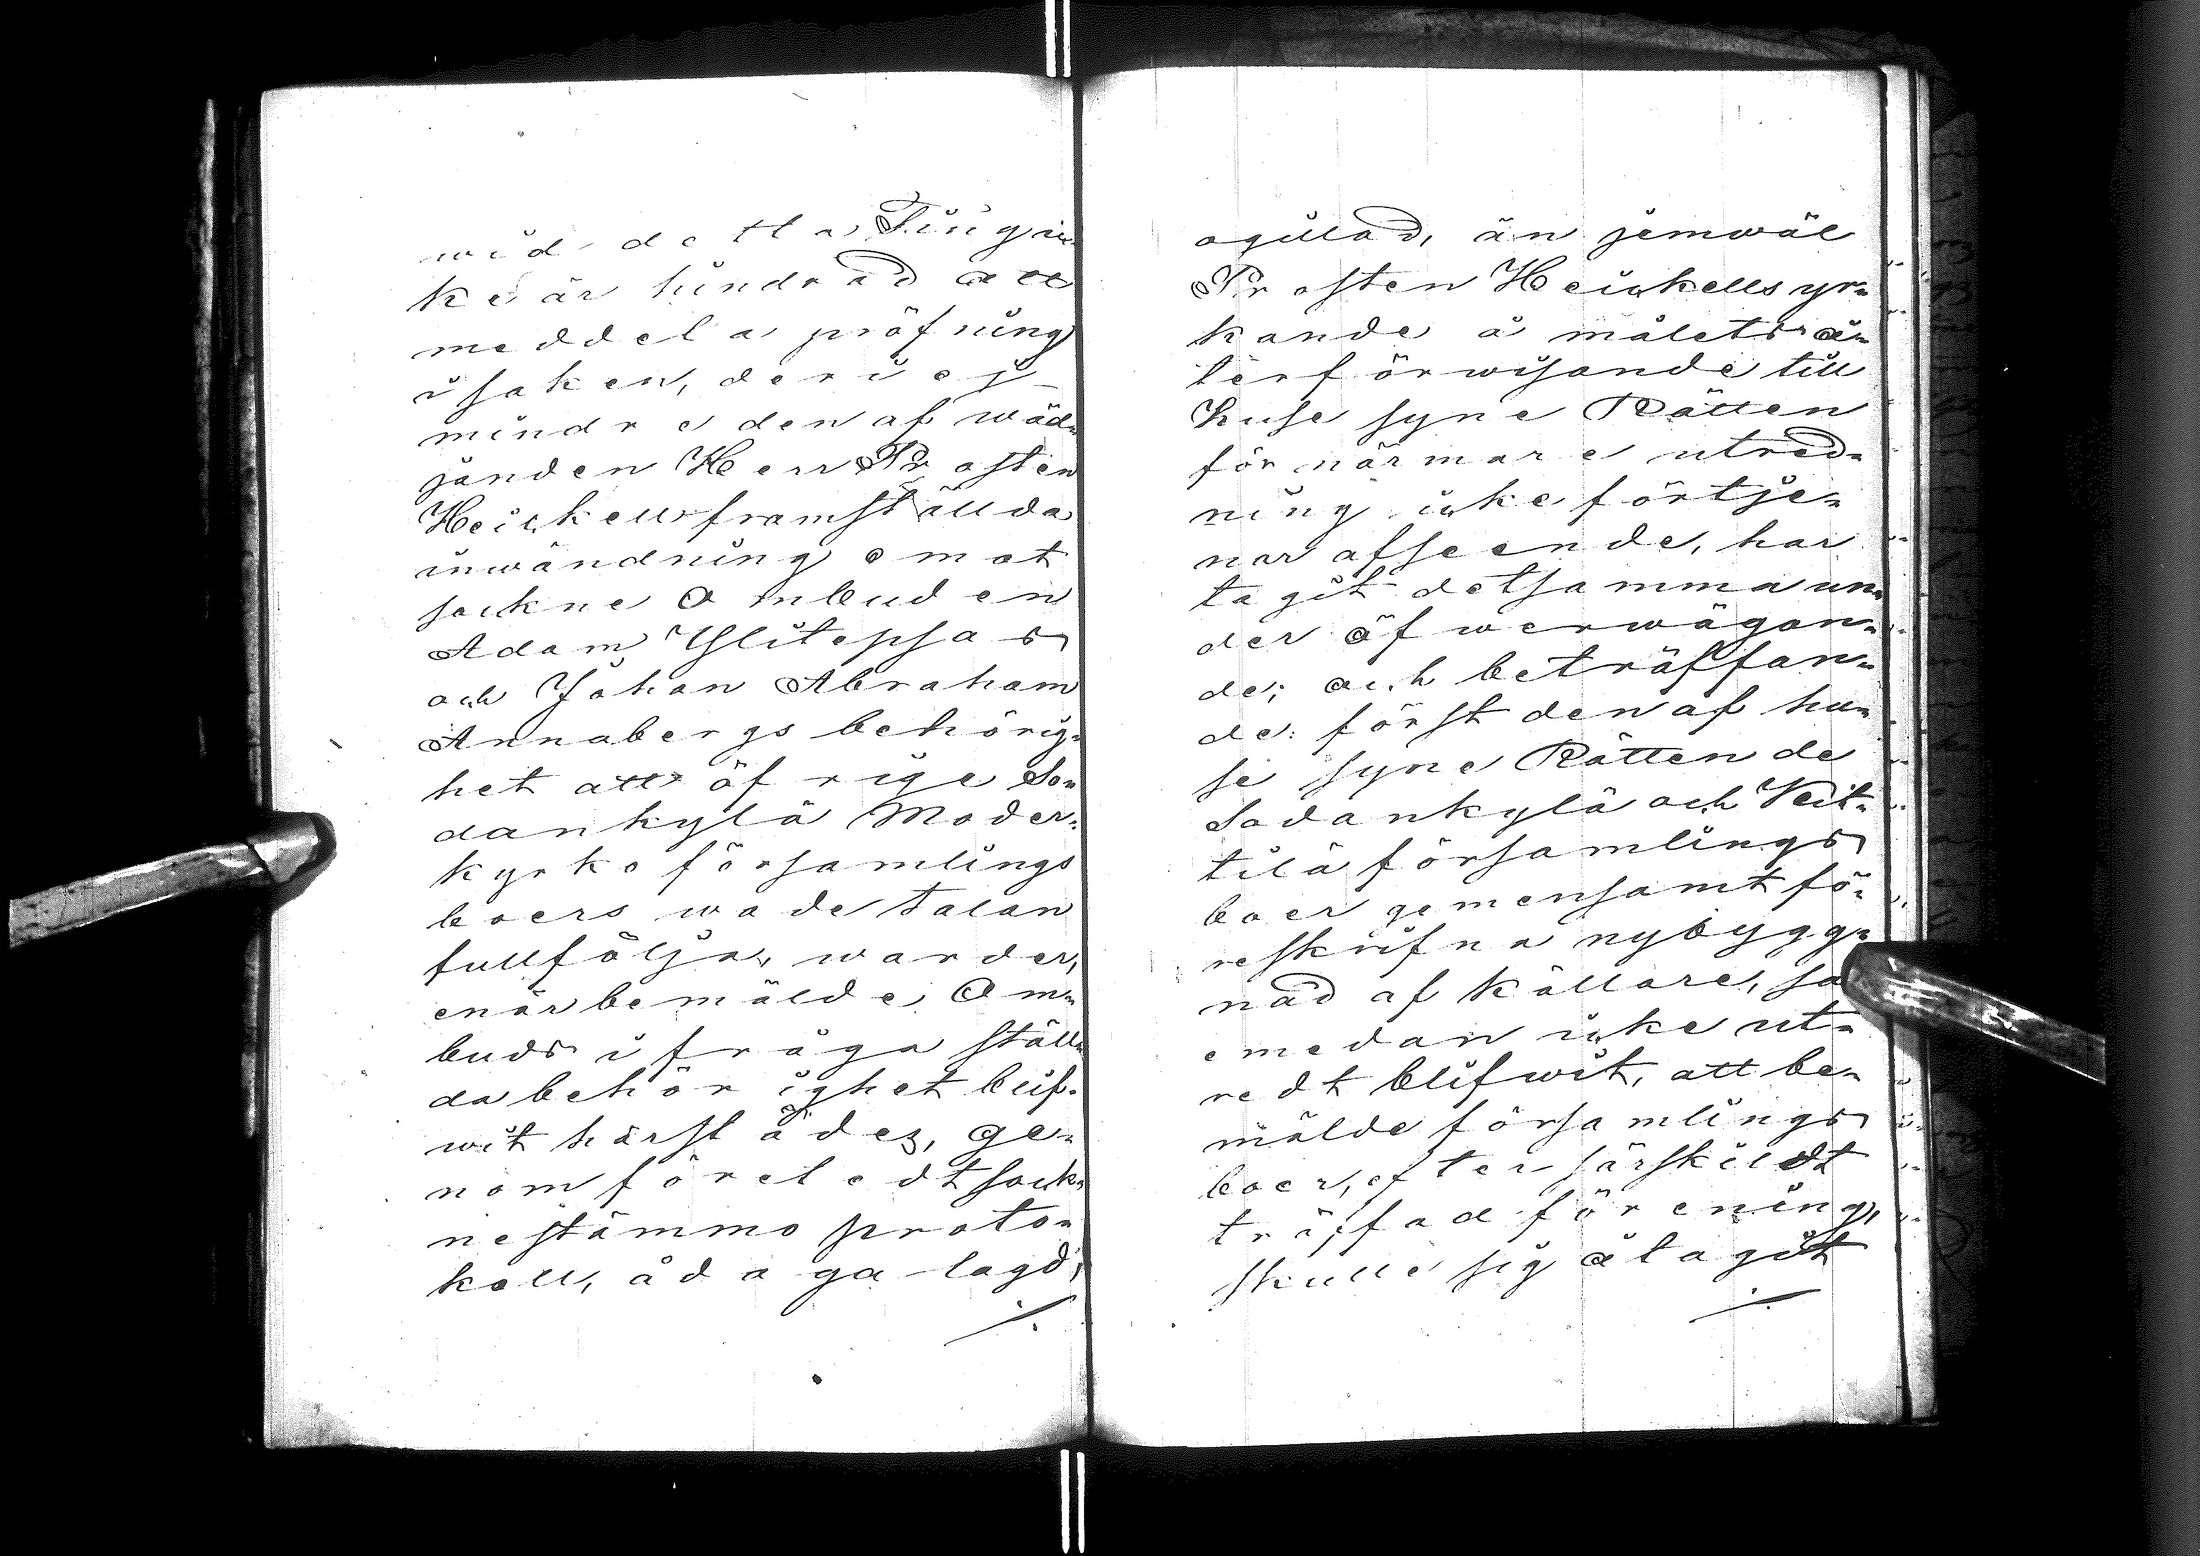 wid detta Ting ic
ke är hindrad att
meddela pröfning
i saken, deri ej
mindre den af wäd-
janden Herr Prosten
Heickells framställda
inwändning om at
sockne Ombuden
Adam Ylitepsas
och Johan Abraham
Annabergs behörig-
het att öfrige So-
dankylä Moder-
kyrko församlings
boers wade talan
fullfölja, warder,
enär bemälde Om-
buds i fråga ställ-
da behörighet blif-
wit härstädes, ge-
nom föreledt sock-
nestämmo proto-
koll, ådagalagd,
./.
ogillad, än jemwäl
Prosten Heickells yr-
kande å målets å-
terförwisande till
Huse syne Rätten
för närmare utred-
ning icke förtje-
nar afseende, har
tagit detsamma un-
der öfwerwägan-
de; och beträffan-
de: först den af hu-
se syne Rätten de
Sodankylä och Kit-
tilä församlings
boer gemensamt fö-
reskrifna nybygg-
nad af källare, så
emedan icke ut-
redt blifwit, att be-
mälde församlings
boer, efter särskildt
träffad förening,
skulle sig åtagit
./.